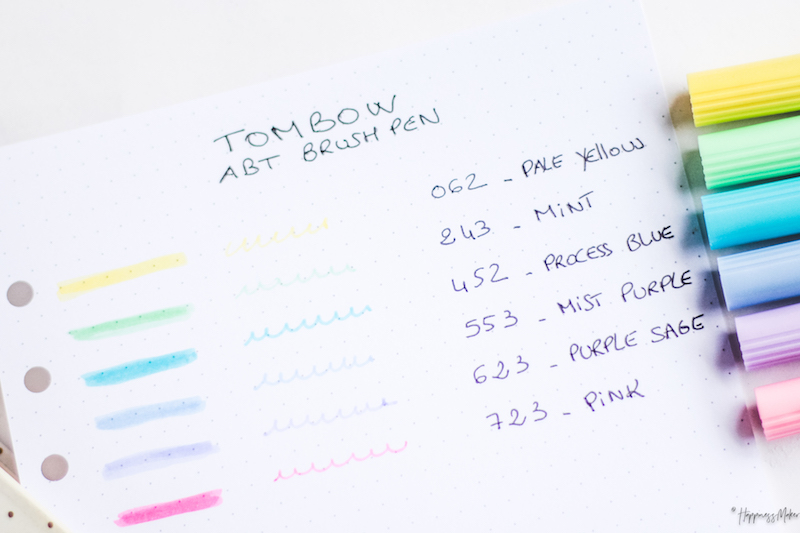 TOMBOW
ABT BRUSH PEN
062 - PALE YELLOW
243 - MINT
452 - PROCESS BLUE
553 - MIST PURPLE
623 - PURPLE SAGE
723 - PINK
© HappinessMaker